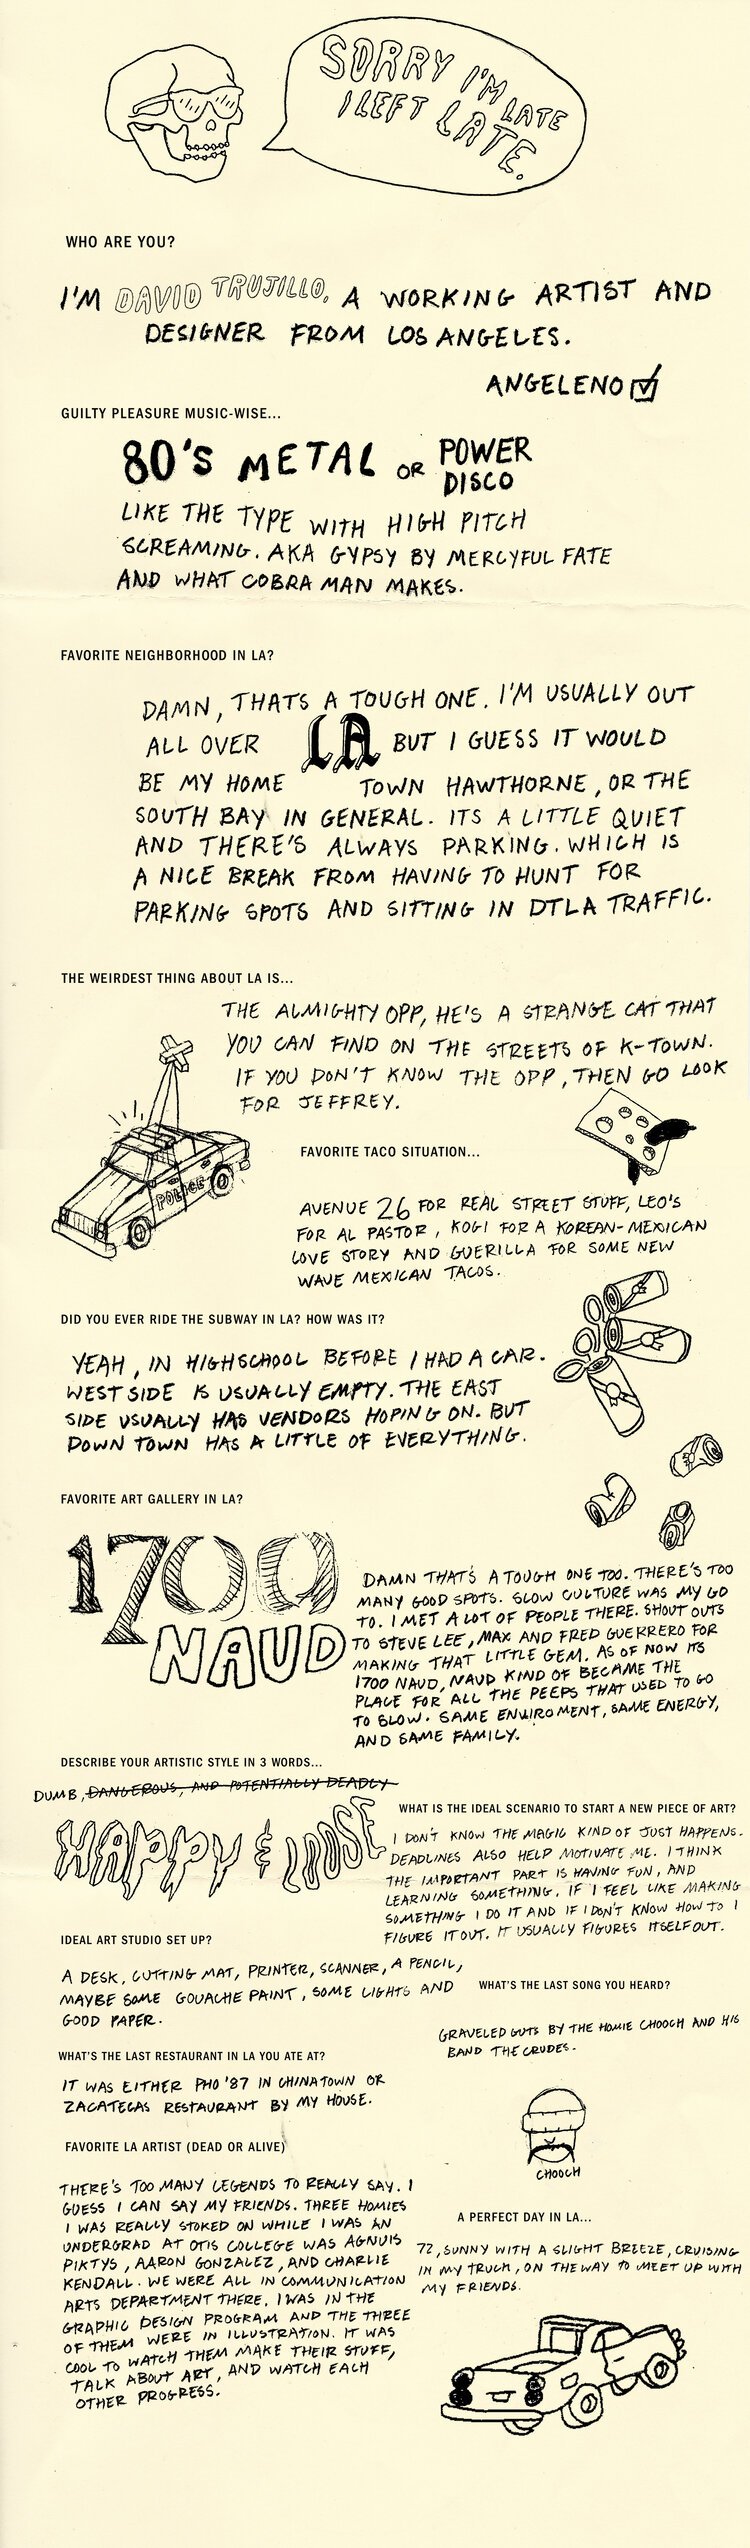 SORRY I'M LATE
I LEFT LATE.
WHO ARE YOU?
I'M DAVID TRUJILLO, A WORKING ARTIST AND
DESIGNER FROM LOS ANGELES.
ANGELENO
GUILTY PLEASURE MUSIC-WISE...
80'S METAL OR POWER
DISCO
LIKE THE TYPE WITH HIGH PITCH
SCREAMING. AKA GYPSY BY MERCYFUL FATE
AND WHAT COBRA MAN MAKES.
FAVORITE NEIGHBORHOOD IN LA?
DAMN, THATS A TOUGH ONE. I'M USUALLY OUT
ALL OVER LA BUT I GUESS IT WOULD
BE MY HOME TOWN HAWTHORNE, OR THE
SOUTH BAY IN GENERAL. ITS A LITTLE QUIET
AND THERE'S ALWAYS PARKING. WHICH IS
A NICE BREAK FROM HAVING TO HUNT FOR
PARKING SPOTS AND SITTING IN DTLA TRAFFIC.
THE WEIRDEST THING ABOUT LA IS...
THE ALMIGHTY OPP, HE'S A STRANGE CAT THAT
YOU CAN FIND ON THE STREETS OF K-TOWN.
IF YOU DON'T KNOW THE OPP, THEN GO LOOK
FOR JEFFREY.
POLICE
FAVORITE TACO SITUATION...
AVENUE 26 FOR REAL STREET STUFF, LEO'S
FOR AL PASTOR, KOGI FOR A KOREAN-MEXICAN
LOVE STORY AND GUERILLA FOR SOME NEW
WAVE MEXICAN TACOS.
DID YOU EVER RIDE THE SUBWAY IN LA? HOW WAS IT?
YEAH, IN HIGHSCHOOL BEFORE I HAD A CAR.
WEST SIDE IS USUALLY EMPTY. THE EAST
SIDE USUALLY HAS VENDORS HOPING ON. BUT
DOWN TOWN HAS A LITTLE OF EVERYTHING.
FAVORITE ART GALLERY IN LA?
1700
NAUD
DAMN THAT'S A TOUGH ONE TOO. THERE'S TOO
MANY GOOD SPOTS. SLOW CULTURE WAS MY GO
TO. I MET A LOT OF PEOPLE THERE. SHOUT OUTS
TO STEVE LEE, MAX AND FRED GUERRERO FOR
MAKING THAT LITTLE GEM. AS OF NOW ITS
1700 NAUD, NAUD KIND OF BECAME THE
PLACE FOR ALL THE PEEPS THAT USED TO GO
TO SLOW. SAME ENVIROMENT, SAME ENERGY,
AND SAME FAMILY.
DESCRIBE YOUR ARTISTIC STYLE IN 3 WORDS...
DUMB, DANGEROUS, AND POTENTIALLY DEADLY
HAPPY & LOOSE
WHAT IS THE IDEAL SCENARIO TO START A NEW PIECE OF ART?
I DON'T KNOW THE MAGIC KIND OF JUST HAPPENS.
DEADLINES ALSO HELP MOTIVATE ME. I THINK
THE IMPORTANT PART IS HAVING FUN, AND
LEARNING SOMETHING. IF I FEEL LIKE MAKING
SOMETHING I DO IT AND IF I DON'T KNOW HOW TO I
FIGURE IT OUT. IT USUALLY FIGURES ITSELF OUT.
IDEAL ART STUDIO SET UP?
A DESK, CUTTING MAT, PRINTER, SCANNER, A PENCIL,
MAYBE SOME GOUACHE PAINT, SOME LIGHTS AND
GOOD PAPER.
WHAT'S THE LAST SONG YOU HEARD?
GRAVELED GUTS BY THE HOMIE CHOOCH AND HIS
BAND THE CRUDES.
WHAT'S THE LAST RESTAURANT IN LA YOU ATE AT?
IT WAS EITHER PHO '87 IN CHINATOWN OR
ZACATECAS RESTAURANT BY MY HOUSE.
CHOOCH
FAVORITE LA ARTIST (DEAD OR ALIVE)
THERE'S TOO MANY LEGENDS TO REALLY SAY. I
GUESS I CAN SAY MY FRIENDS. THREE HOMIES
I WAS REALLY STOKED ON WHILE I WAS AN
UNDERGRAD AT OTIS COLLEGE WAS AGNUIS
PIKTYS, AARON GONZALEZ, AND CHARLIE
KENDALL. WE WERE ALL IN COMMUNICATION
ARTS DEPARTMENT THERE. I WAS IN THE
GRAPHIC DESIGN PROGRAM AND THE THREE
OF THEM WERE IN ILLUSTRATION. IT WAS
COOL TO WATCH THEM MAKE THEIR STUFF,
TALK ABOUT ART, AND WATCH EACH
OTHER PROGRESS.
A PERFECT DAY IN LA...
72, SUNNY WITH A SLIGHT BREEZE, CRUISING
IN MY TRUCK, ON THE WAY TO MEET UP WITH
MY FRIENDS.